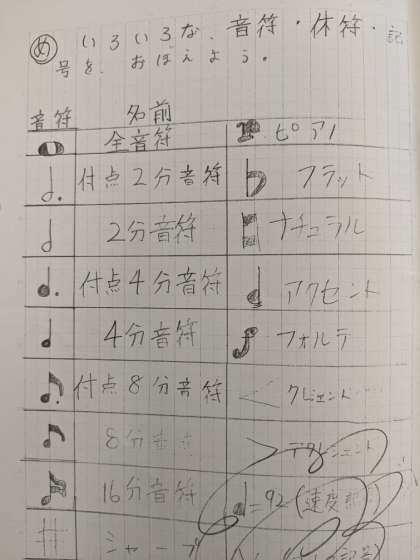 め いろいろな、音符・休符・記
号を、おぼえよう。
音符 名前
全音符 ピアノ
付点2分音符 フラット
2分音符 ナチュラル
付点4分音符 アクセント
4分音符 フォルテ
付点8分音符 クレシェンド
8分音符 デクレシェンド
16分音符 =92(速度記号)
シャープ